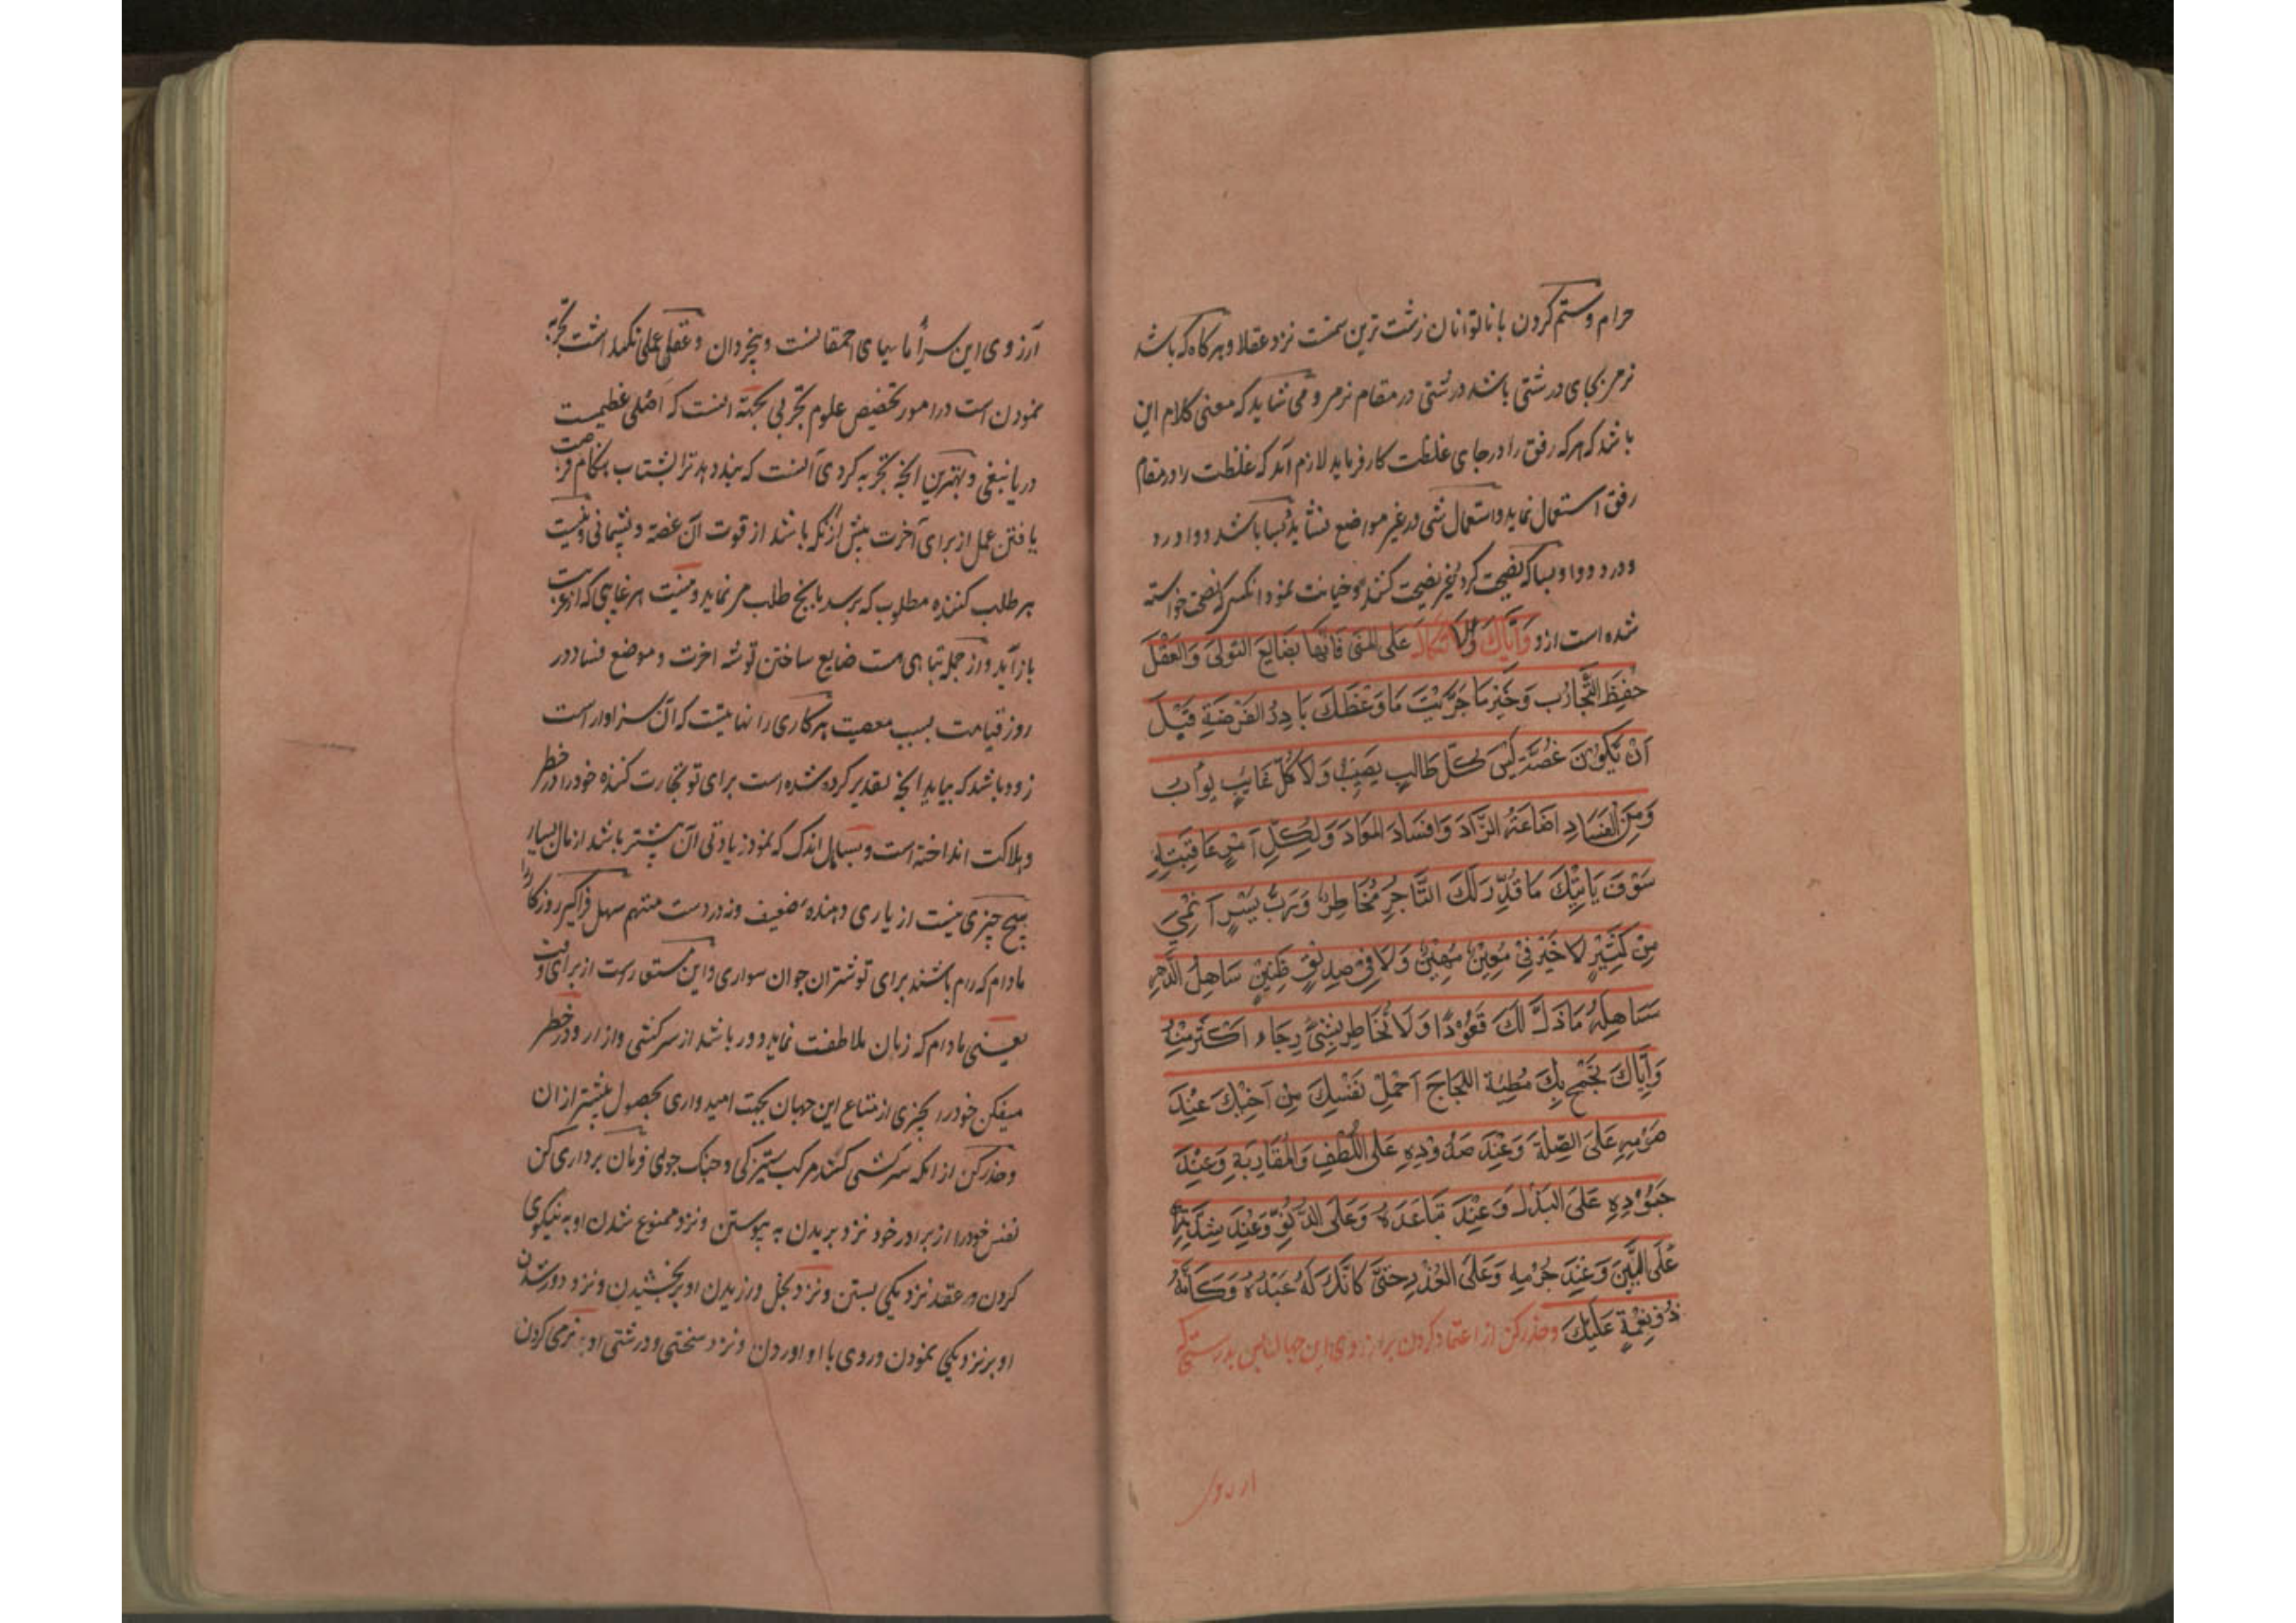 حرام و ستم کردن با ناتوانان زشت ترین ستمست نزد عقلا و هرکاه که باشد
نرمی بجای درشتی باشد درشتی در مقام نرمی و می شاید که معنی کلام این
باشد که هرکه رفق را در جای غلظت کار فرماید لازم آید که غلظت را در مقام
رفق استعمال نماید و استعمال شی در غیر مواضع نشاید بسا باشد دوا درد
و درد دوا و بسا که نصیحت کرد غیر نصیحت کننده و خیانت نمود انکس که نصیحت خواسته
شده است ازو وَاِیّاکَ وَالاتکال عَلَی المُنی فَاِنَّها بَضَائِعُ النَّوکی وَالعَقْلُ
حِفْظُ التَّجَارُبِ وَخَیْرُ مَا جَرَّبْتَ مَا وَعَظَكَ بَادِرُ الفُرْصَةِ قَبْلَ
اَنْ یَکُوْنَ غُصَّةً لَیْسَ کُلّ طَالِبٍ یُصِیْبُ وَلَا کُلّ غَایِبٍ یَوأبُ
وَمِنَ الْفَسَادِ اضَاعَةُ الزَّادِ وَاِفْسَادُ المَعَادِ وَلِکُلِّ اَمْرٍ عَاقِبَتِهِ
سَوْفَ یَاتِیْكَ مَا قُدِّرَ لَكَ التَّاجِرُ مُخَاطِرٌ وَرُبَّ یَسِیْرٍ اَنْمٰی
مِنْ کَثِیْرٍ لَا خَیْرَ فِیْ مُعِیْنٍ مُهِیْنٍ وَلَا فِیْ صَدِیْقٍ ظَنِیْنٍ سَاهِلُ الدَّهْرِ
سَاهِلهُ مَا ذَلَّ لَكَ قَعُوْدًا وَلَا تُخَاطِر بِشَیْءٍ رِجَاءِ اَکْثَرَ مِنْهُ
وَاِیّاكَ تَجْمَح بِكَ مُطِیَّة اللجَاجِ اَحْمِلْ نَفْسِكَ مِنْ اَخِیْكَ عِنْدَ
صَرْمِهِ عَلَی الصِّلَةِ وَعِنْدَ صَدُوْدِهِ عَلَی اللُّطْفِ وَالمُقَارِبَةِ وَعِنْدَ
جُمُوْدِهِ عَلَی البَذْلِ وَعِنْدَ تَبَاعُدَهُ وَعَلَی الدُّنُوِّ وَعِنْدَ شِدَّتِهِ
عَلَی اللَّیِّنِ وَعِنْدَ جُرْمِهِ وَعَلَی العُذْرِ حَتّٰی کَانَّكَ لَهُ عَبْدُهُ وَکَانَّهُ
ذُوْ نِعْمَةٍ عَلَیْكَ و حذر کن از اعتماد کردن بر ارزوی این جهان پس بدرستی که
ارزوی
آرزوی این سرا ما یهای احمقانست و بیخردان و عقلی عملی نکهداشت تجربه
نمودن است در امور تخصیص علوم تجربی بجهته انست که اصلی عظیمست
دریا نبغی و بهترین انچه تجربه کردی آنست که پند دهد ترا بشتاب بهنکام فرصت
یافتن عمل از برای آخرت پیش ازنکه باشد از قوت آن غصه و پشیمانی و نیست
هر طلب کننده مطلوب که برسد بانچ طلب می نماید و نیست هر غایبی که از غیبت
باز آید و از جمله تباهی ست ضایع ساختن توشه اخرت و موضع فساد در
روز قیامت بسبب معصیت هر کاری را نهایتست که آن سزاوار است
زود باشد که بیاید انچه تقدیر کرده شده است برای تو تجارت کننده خود را در خطر
و هلاکت انداخته است و بسا مال اندک که نمو و زیادتی آن بیشتر باشد از مال بسیار
هیچ چیزی نیست از یاری دهنده ضعیف و نه در دوست متهم سهل فراکیر روزکار را
مادام که رام باشند برای تو شتران جوان سواری و این مستعارست از برای وقت
یعنی مادام که زمان ملاطفت نماید و دور باشد از سرکشی و ازار و در خطر
میفکن خود را بچیزی از متاع این جهان بجهت امیدواری بحصول بیشتر از ان
و حذر کن از انکه سرکشی کند مرکب ستیزکی و جنک جوی فرمان برداری کن
نفس خود را از برادر خود نزد بریدن به پیوستن و نزد ممنوع شدن او به نیکوی
کردن و عقد نزدیکی بستن و نزد بخل ورزیدن او بر بخشیدن و نزد دور شدن
او بر نزدیکی نمودن و روی با او اوردن و نزد سختی و درشتی او بر نرمی کردن